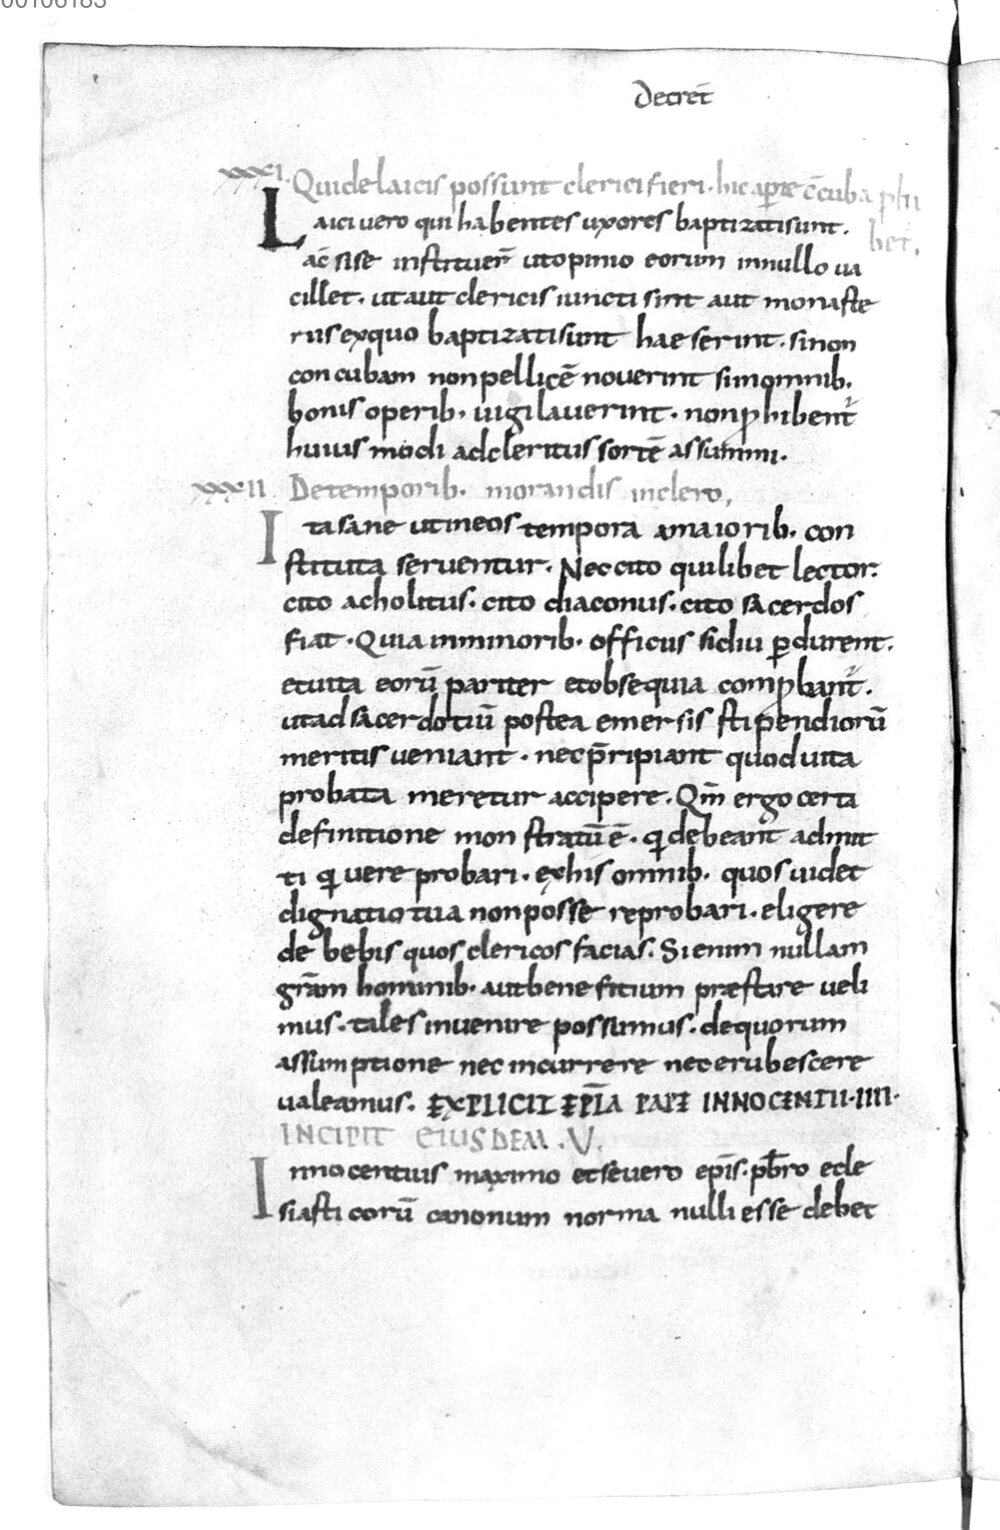 00106183
Decret̄
XXXI. Qui de laicis possunt clerici fieri. hic aꝑte c̄cuba ꝓhi
bet̄.
Laici uero qui habentes uxores baptizati sunt.
ac̄ si se instituer̄ ut opinio eorum in nullo ua
cillet. ut aut clericis iuncti sint aut monaste
riis ex quo baptizati sunt haeserint. si non
concubam non pellicē nouerint si in omnib.
bonis operib. uigilauerint. non ꝓhibent̄
huius modi ad cleritus sortē assummi.
XXXII De temporib. morandis in clero,
Ita sane ut in eos tempora a maiorib. con
stituta seruentur. Nec cito quilibet lector.
cito acholitus. cito diaconus. cito sacerdos
fiat. Quia in minorib. officiis si diu ꝑdurent.
et uita eorū pariter et obsequia comꝓbant̄.
ut ad sacerdotiū postea emersis stipendiorū
meritis ueniant. nec p̄ripiant quod uita
probata meretur accipere. Qm̄ ergo certa
definitione monstratū ē. qi debeant admit
ti qi uere probari. ex his omnib. quos uidet
dignatio tua non posse reprobari. eligere
debebis quos clericos facias. Si enim nullam
gr̄am hominib. aut beneficium præstare ueli
mus. tales inuenire possumus. de quorum
assumptione nec incurrere nec erubescere
ualeamus. EXPLICIT EPL̄A PAPE INNOCENTII. IIII.
INCIPIT EIUSDEM. V.
Innocentius maximo et seuero epīs. pb̄ro ecle
siasticorū canonum norma nulli esse debet